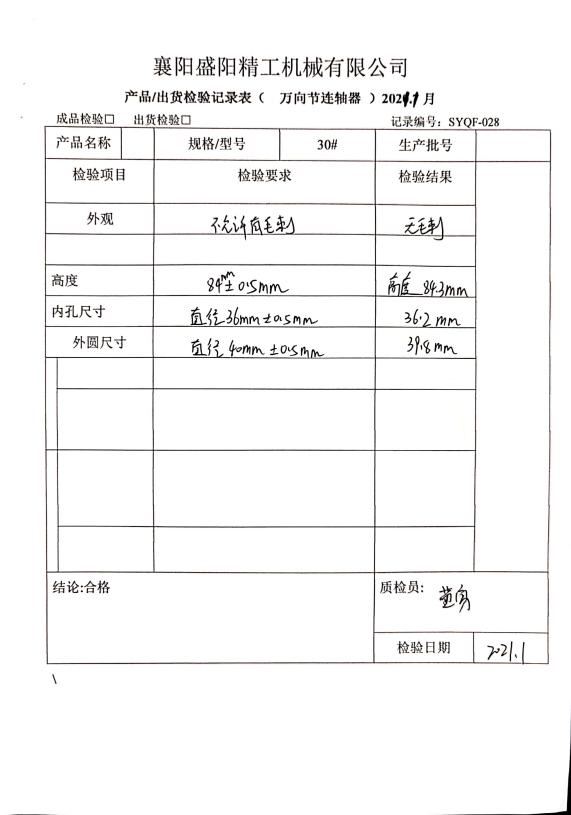 襄阳盛阳精工机械有限公司
产品/出货检验记录表（ 万向节连轴器 ）2021.1月
成品检验□ 出货检验□ 记录编号：SYQF-028
产品名称 规格/型号 30# 生产批号
检验项目 检验要求 检验结果
外观 不允许有毛刺 无毛刺
高度 84mm±0.5mm 高度 84.3mm
内孔尺寸 直径36mm±0.5mm 36.2mm
外圆尺寸 直径40mm±0.5mm 39.8mm
结论:合格 质检员:
检验日期 2021.1
\